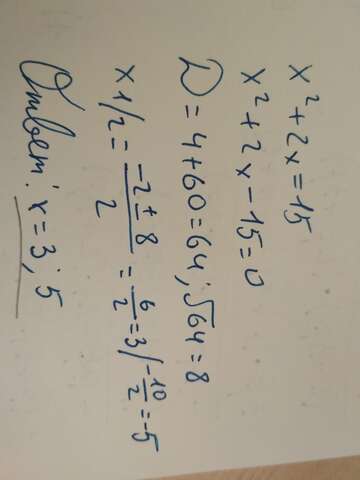 x² + 2x = 15
x² + 2x - 15 = 0
D = 4 + 60 = 64; √64 = 8
x 1/2 = (-2 ± 8)/2 = 6/2 = 3 / -10/2 = -5
Ответ: x = 3; 5